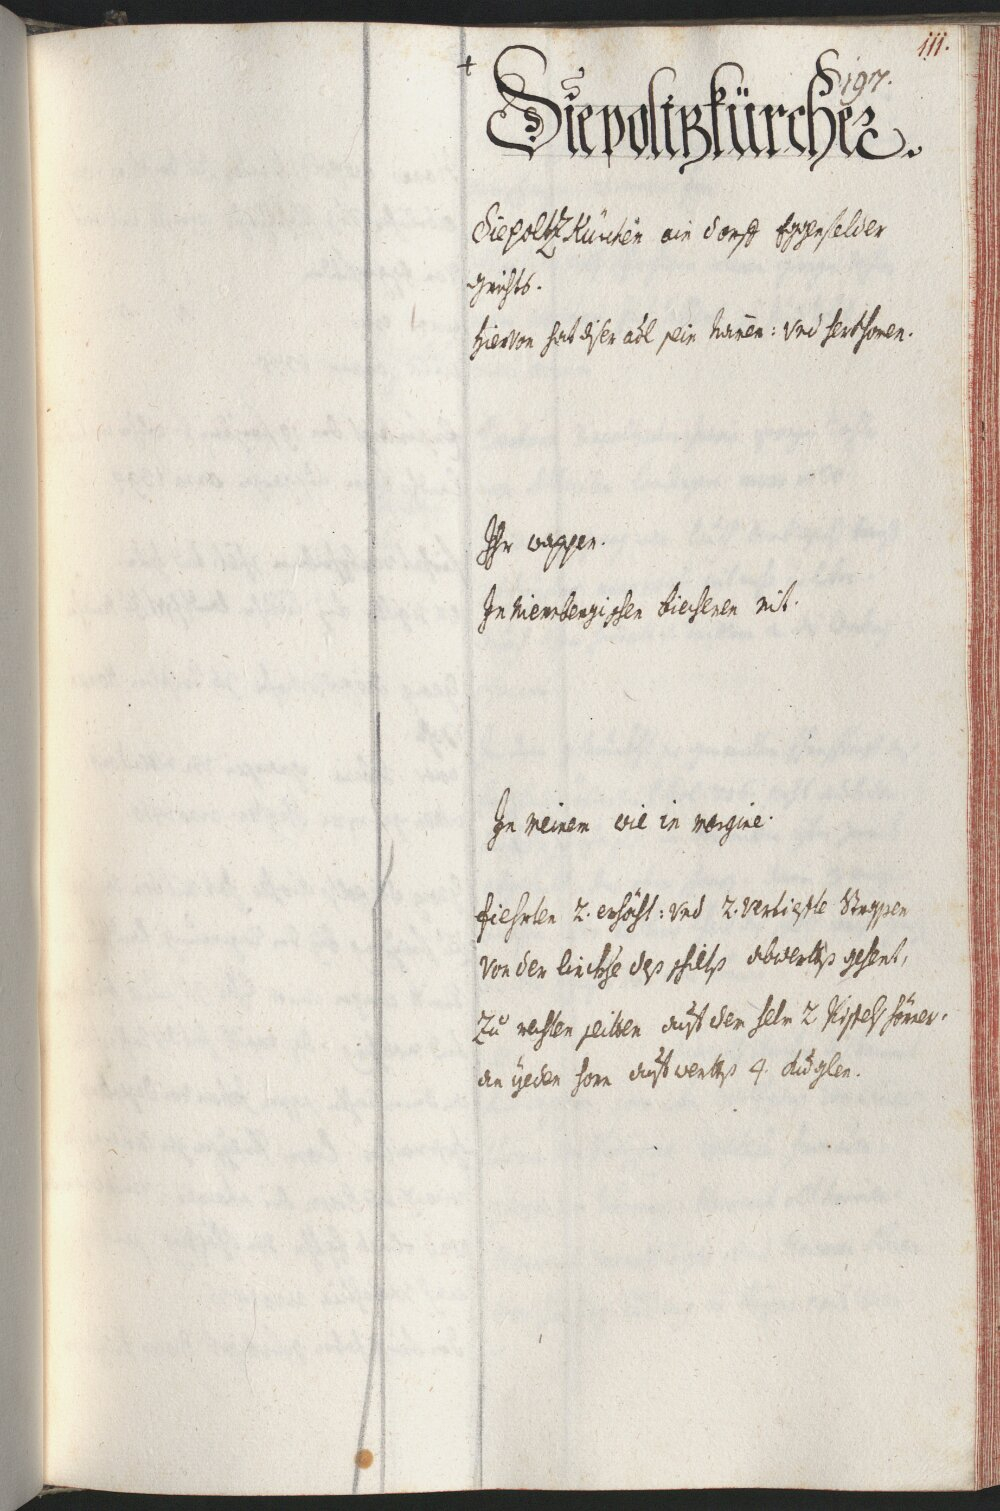 111.
197.
Diepoltzkürcher.
Diepoltzkürchen ein dorff Eggenfelder
grichts.
Hiervon hat diser adl sein namen: vnd herkhomen.
Ihr wappen.
In Niernbergischen biecheren nit.
In meinem wie in margine.
fiehrten 2. erhöcht: vnd 2. vertieffte Strassen
von der linckhe deß schilts abwerts gehent,
Zu rechten seitten auf dem helm 2 Pifflshörner.
an yeden horn außwerts 4. kuglen.